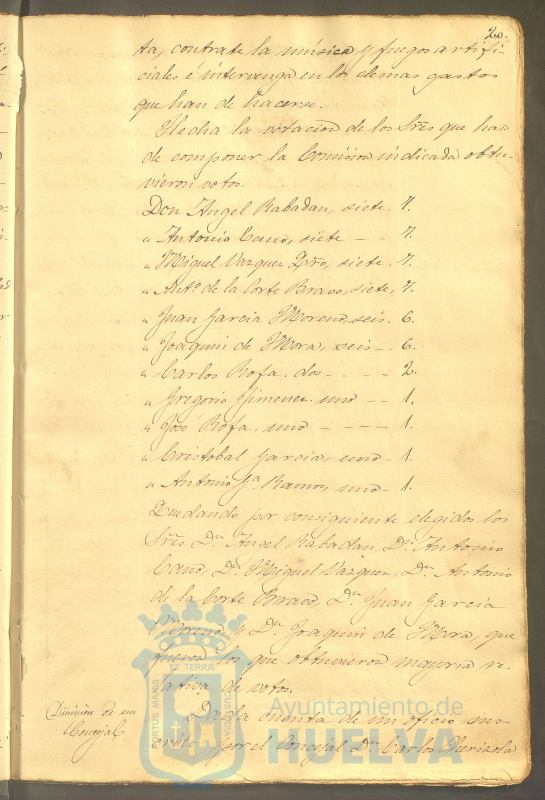 20.
ta, contrate la música y fuegos artifi-
ciales é intervenga en los demas gastos
que han de hacerse.
Hecha la votacion de los Sres que han
de componer la Comision indicada obtu-
vieron votos.
Don Angel Rabadan, siete. 7.
" Antonio Cano, siete - - 7.
" Miguel Vazquez, siete. 7.
" Anto de la Corte Bravo, siete, 7.
" Juan Garcia Moreno, seis. 6.
" Joaquin de Mora, seis - 6.
" Carlos Rofa. dos - - - - 2.
" Gregorio Jimenez. uno - - 1.
" José Rofa. uno - - - - 1.
" Cristobal Garcia, uno - 1.
" Antonio Ga. Ramos, uno - 1.
Quedando por consiguiente elegidos los
Sres Dn. Angel Rabadan, Dn. Antonio
Cano, Dn. Miguel Vazquez, Dn. Antonio
de la Corte Bravo, Dn. Juan Garcia
Moreno, y Dn. Joaquin de Mora, que
fueron los que obtuvieron mayoria re-
lativa de votos.
Dimision de un
Concejal
Dada cuenta de un oficio sus-
crito por el Concejal Dn. Carlos
PORTUS MARIS
ET TERRÆ
CUSTODIA
Ayuntamiento de
HUELVA